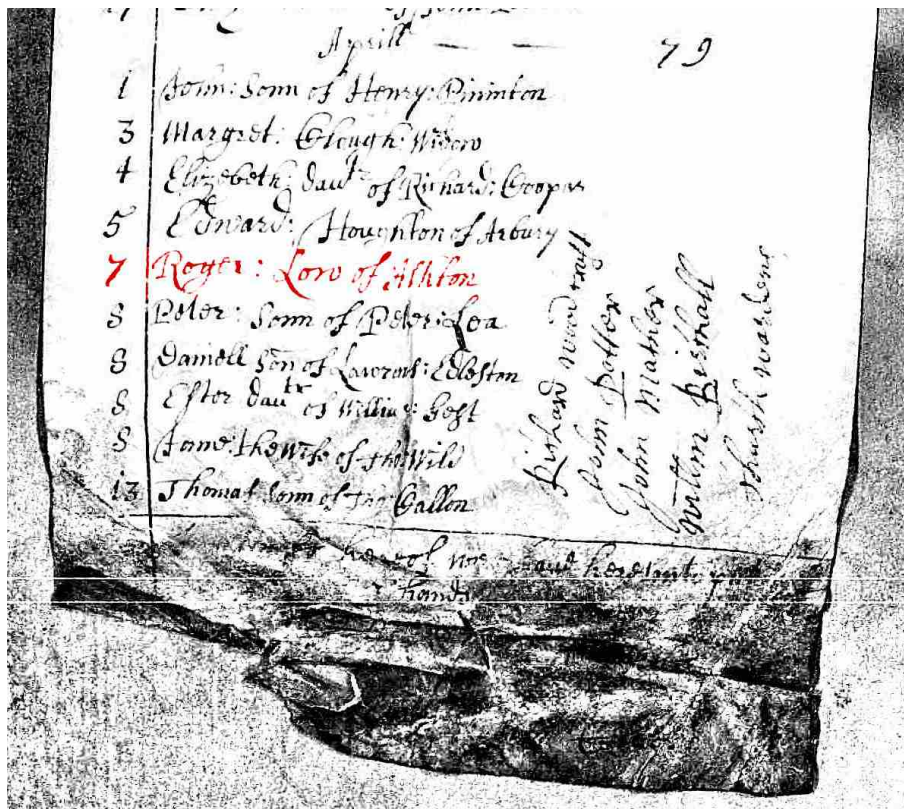 Aprill 79
1 John: Sonn of Henry: Pininton
3 Margret: Clough: Widow
4 Elizebeth: dautr of Richard: Cooper
5 Edward: Houghton of Arbury
7 Roger: Low of Ashton
8 Peter: Sonn of Peter: Lea
8 Daniell Son of Lawrans: Edleston
8 Ester dautr of William:
8 Jane: the Wife of Tho: Wild
13 Thomas Sonn of Jno Gallon
hands
Richard Woodruff
John Potter
John Mather
Willm Birchall
Church Wardens